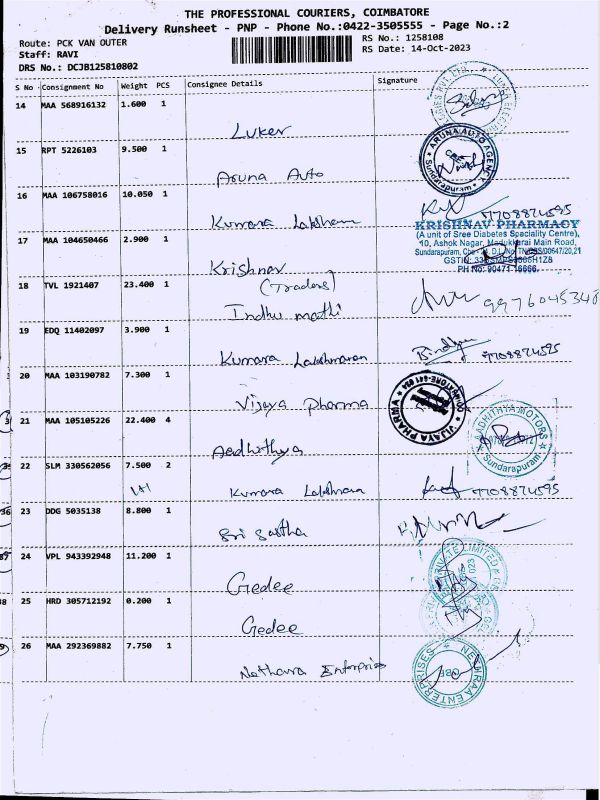 THE PROFESSIONAL COURIERS, COIMBATORE
Delivery Runsheet - PNP - Phone No.:0422-3505555 - Page No.:2
Route: PCK VAN OUTER
RS No.: 1258108
Staff: RAVI
RS Date: 14-Oct-2023
DRS No.: DCJB125810802
S No Consignment No Weight PCS Consignee Details Signature
14 MAA 568916132 1.600 1
Luker
15 RPT 5226103 9.500 1
ARUNA AUTO AGENCY
Sundarapuram
Aruna Auto
16 MAA 106758016 10.050 1
Kumara Lakshman 9708874595
17 MAA 104650466 2.900 1
KRISHNAV PHARMACY
(A unit of Sree Diabetes Speciality Centre),
10, Ashok Nagar, Madukkarai Main Road,
Sundarapuram,
GSTIN:
PH No: 90471 16666
Krishnav
18 TVL 1921407 23.400 1
(Traders)
Indhu mathi 9976045348
19 EDQ 11402097 3.900 1
Kumara Lakshmanan 9708874595
20 MAA 103190782 7.300 1
VIJAYA PHARMA
Vijaya Pharma
21 MAA 105105226 22.400 4
AADHITHYA MOTORS
Sundarapuram
Aadhithya
22 SLM 330562056 7.500 2
Kumara Lakshman 9708874595
23 DDG 5035138 8.800 1
Sri Sastha
24 VPL 943392948 11.200 1
Gedee
25 HRD 305712192 0.200 1
Gedee
26 MAA 292369882 7.750 1
Nethraa Enterprises
NETHRAA ENTERPRISES
CBE